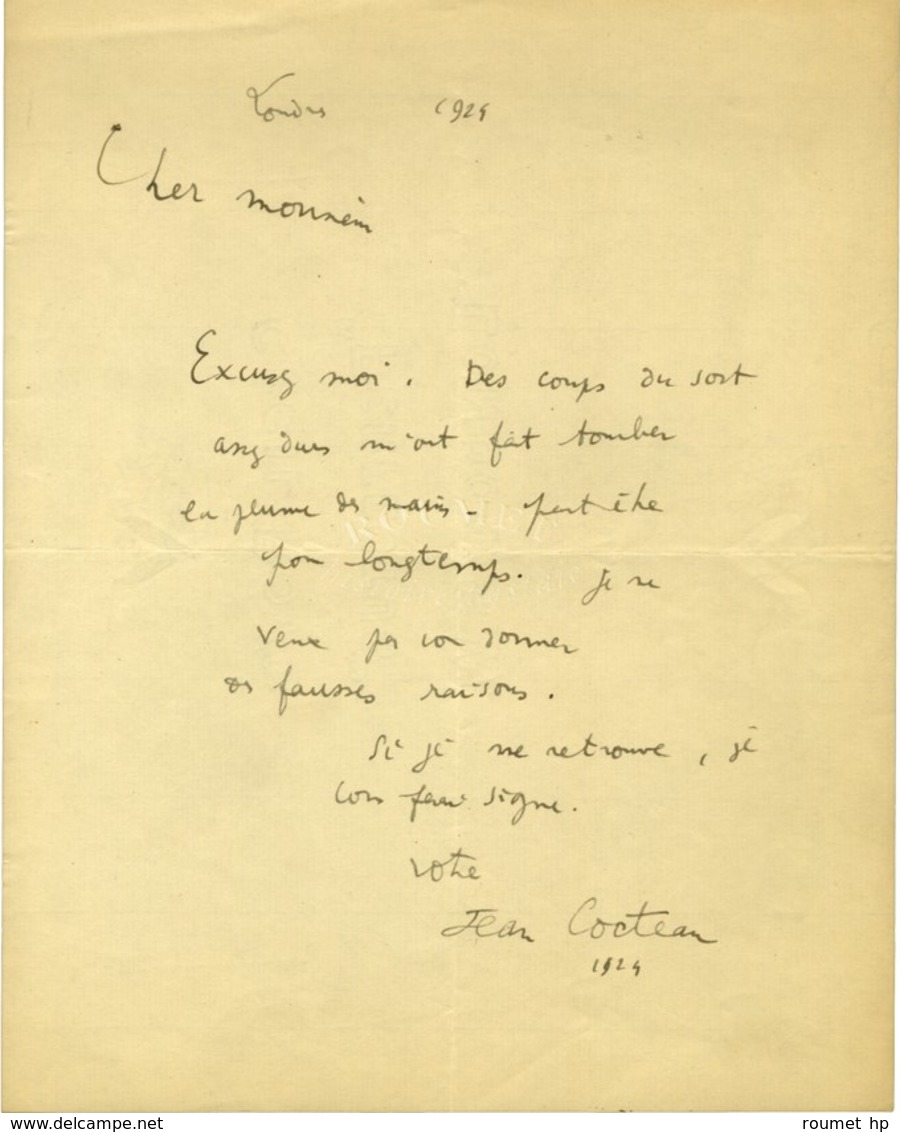 Londres 1924
Cher monsieur
Excusez moi. Des coups du sort
assez durs m'ont fait tomber
la plume des mains - peut être
pour longtemps. Je ne
veux pas vous donner
des fausses raisons.
Si je me retrouve, je
vous ferai signe.
votre
Jean Cocteau
1924
ROUMET
www.delcampe.net
roumet hp